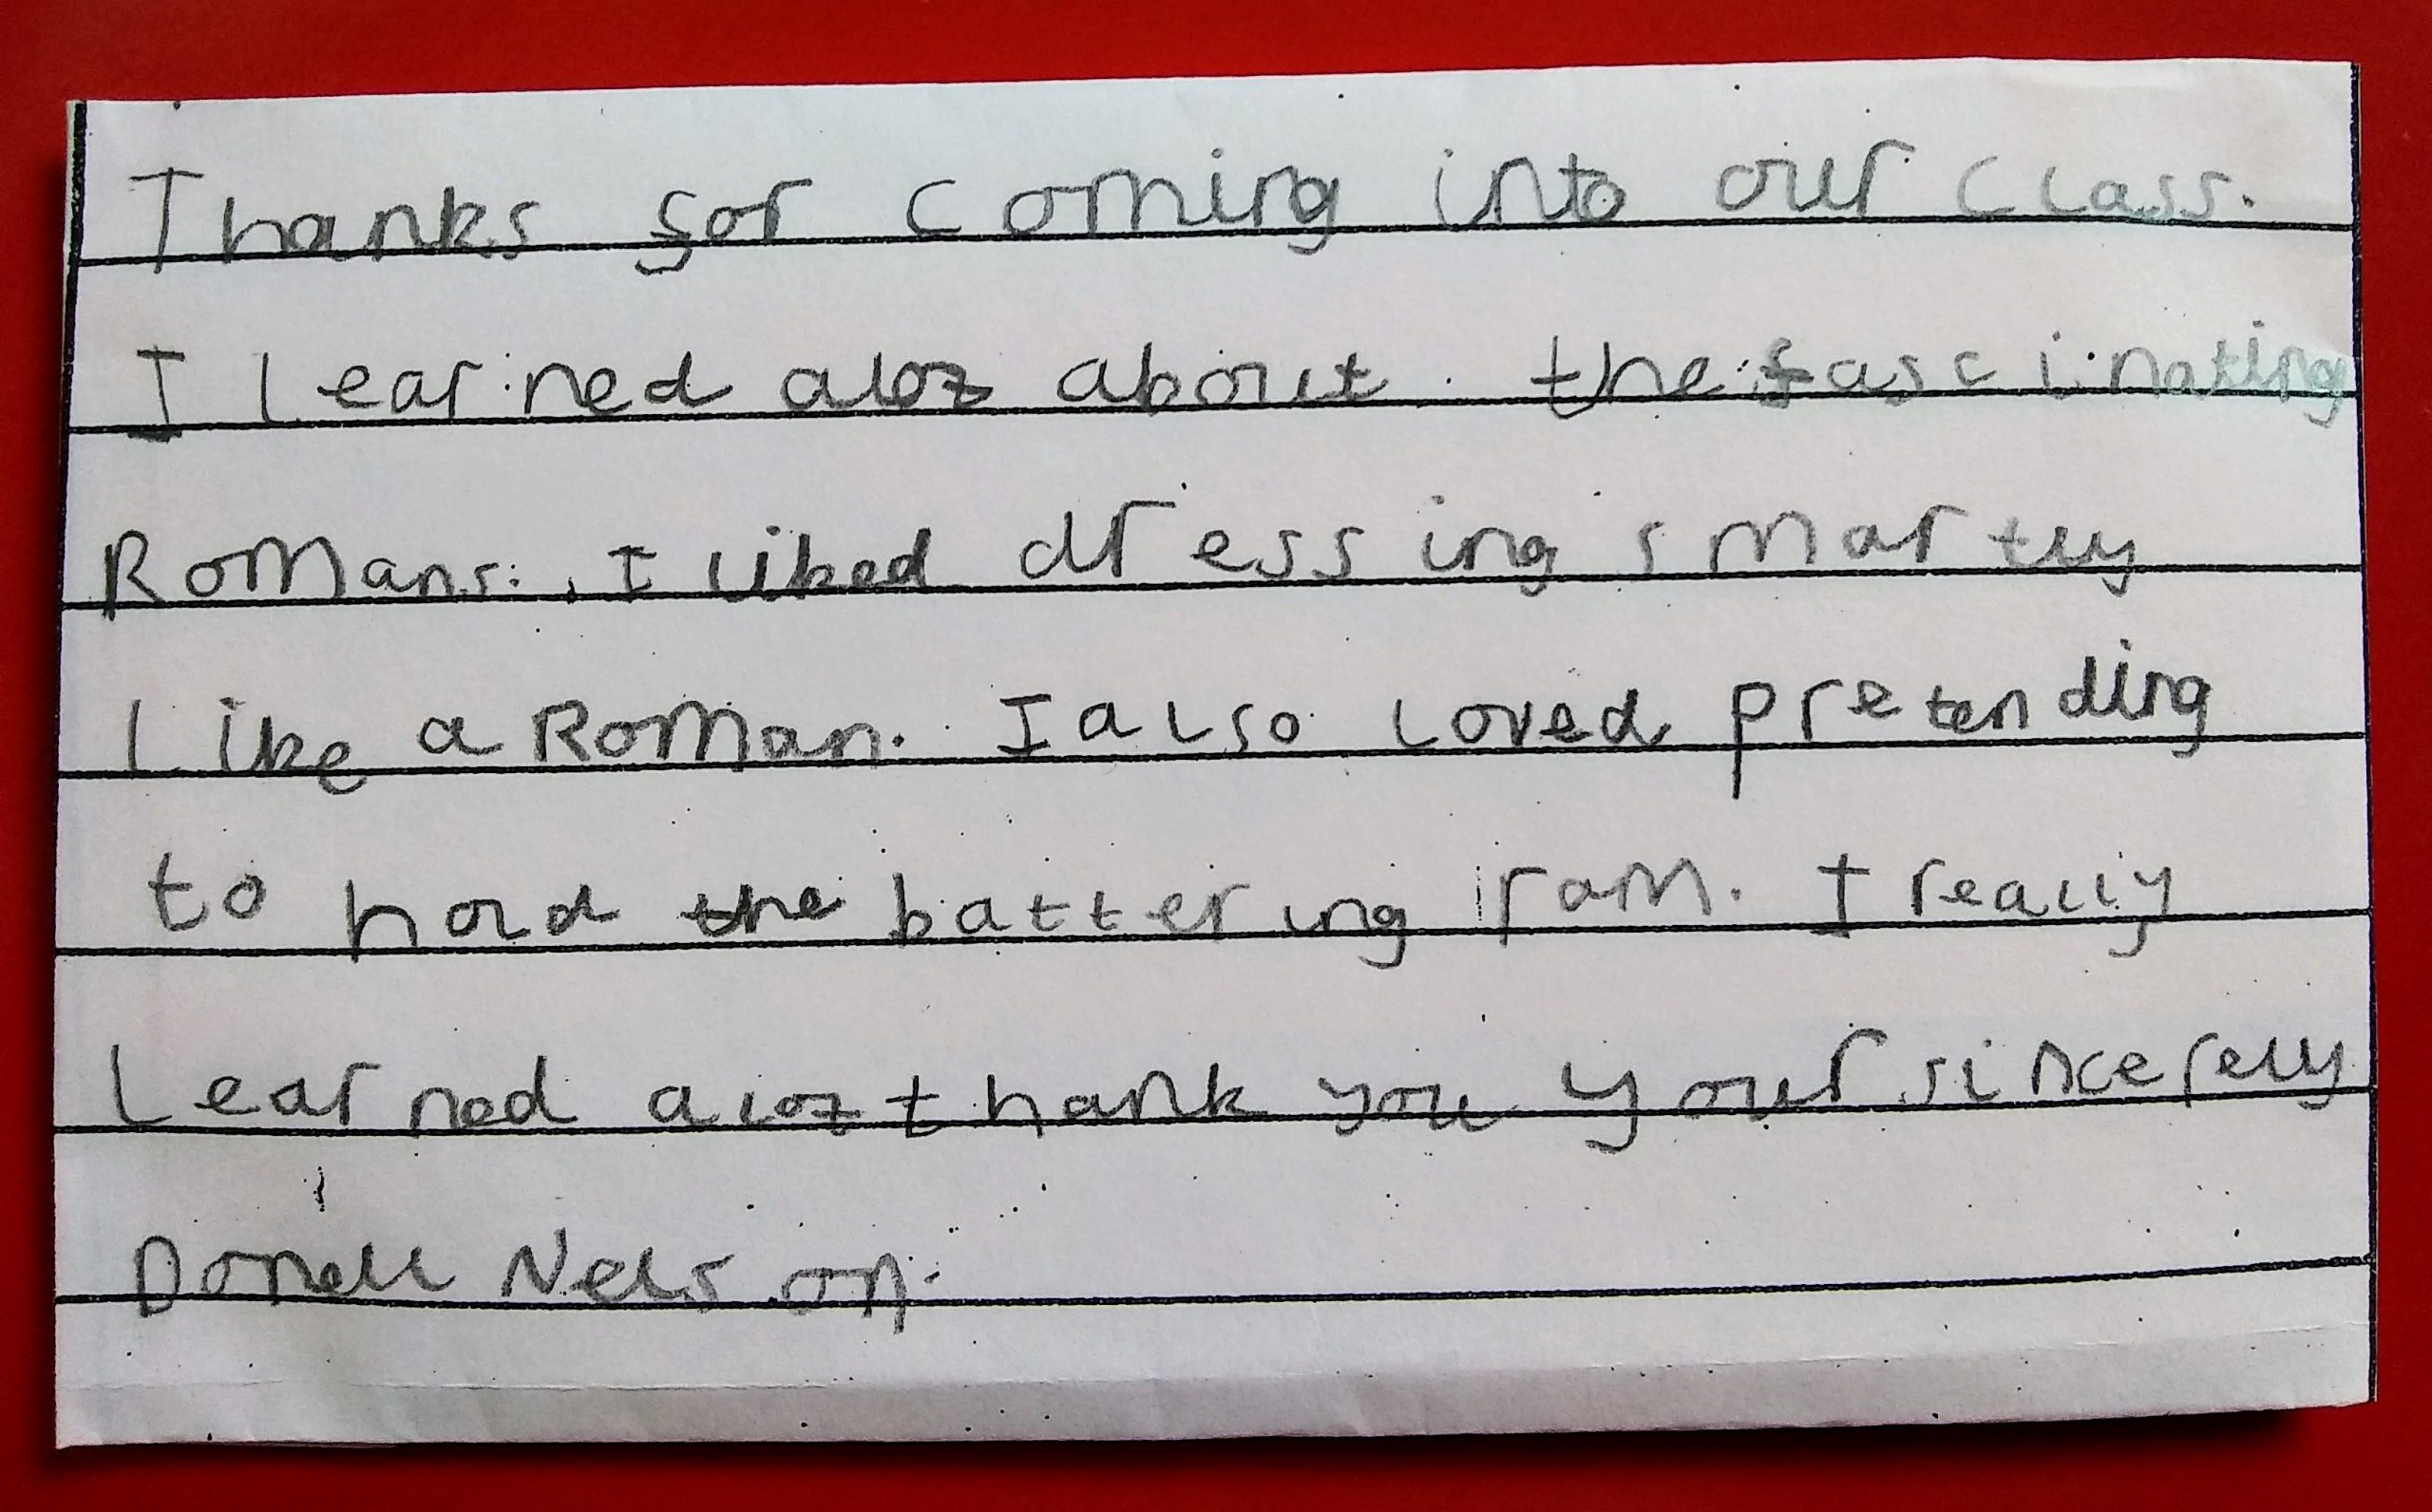 Thanks for coming into our class.
I learned alot about the fascinating
Romans. I liked dressing smartly
like a Roman. I also loved pretending
to hold the battering ram. I really
Learned alot thank you your sincerely
Donell Nelson.